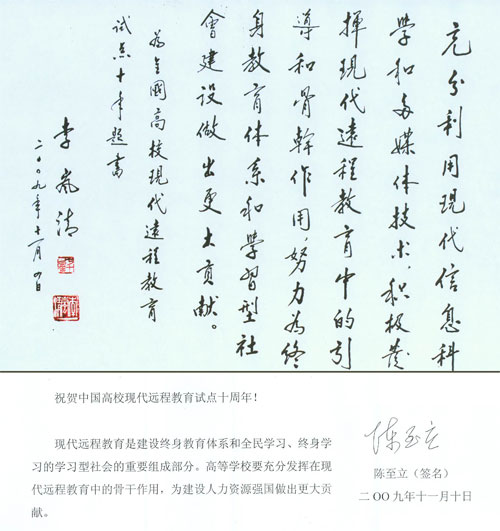 充分利用现代信息科
学和多媒体技术，积极发
挥现代遠程教育中的引
導和骨幹作用，努力为终
身教育体系和學習型社
會建设做出更大贡献。
为全國高校现代遠程教育
试点十年题书
李岚清
二〇〇九年十一月四日
祝贺中国高校现代远程教育试点十周年！
现代远程教育是建设终身教育体系和全民学习、终身学
习的学习型社会的重要组成部分。高等学校要充分发挥在现
代远程教育中的骨干作用，为建设人力资源强国做出更大贡
献。
陈至立
陈至立（签名）
二〇〇九年十一月十日